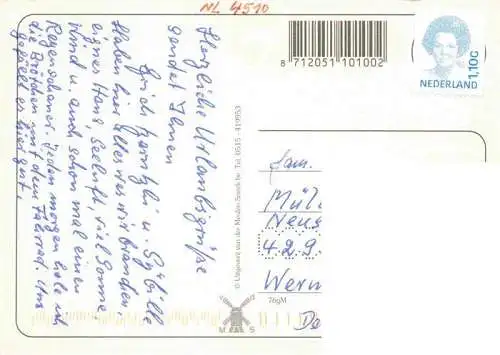 NL 4510
8 712051 101002
NEDERLAND
1,10G
Herzliche Urlaubsgrüße
sendet Ihnen
Haben hier alles was wir brauchen.
eigenes Haus, Seeluft, viel Sonne,
Wind u. auch schon mal einen
Regenschauer. Jeden morgen hole ich
die Brötchen mit dem Fahrrad. Uns
gefällt es hier gut.
© Uitgeverij van der Meulen Sneek bv Tel. 0515 - 419953
Fam.
Mül
Neug
429
Wern
76gM
De
M S